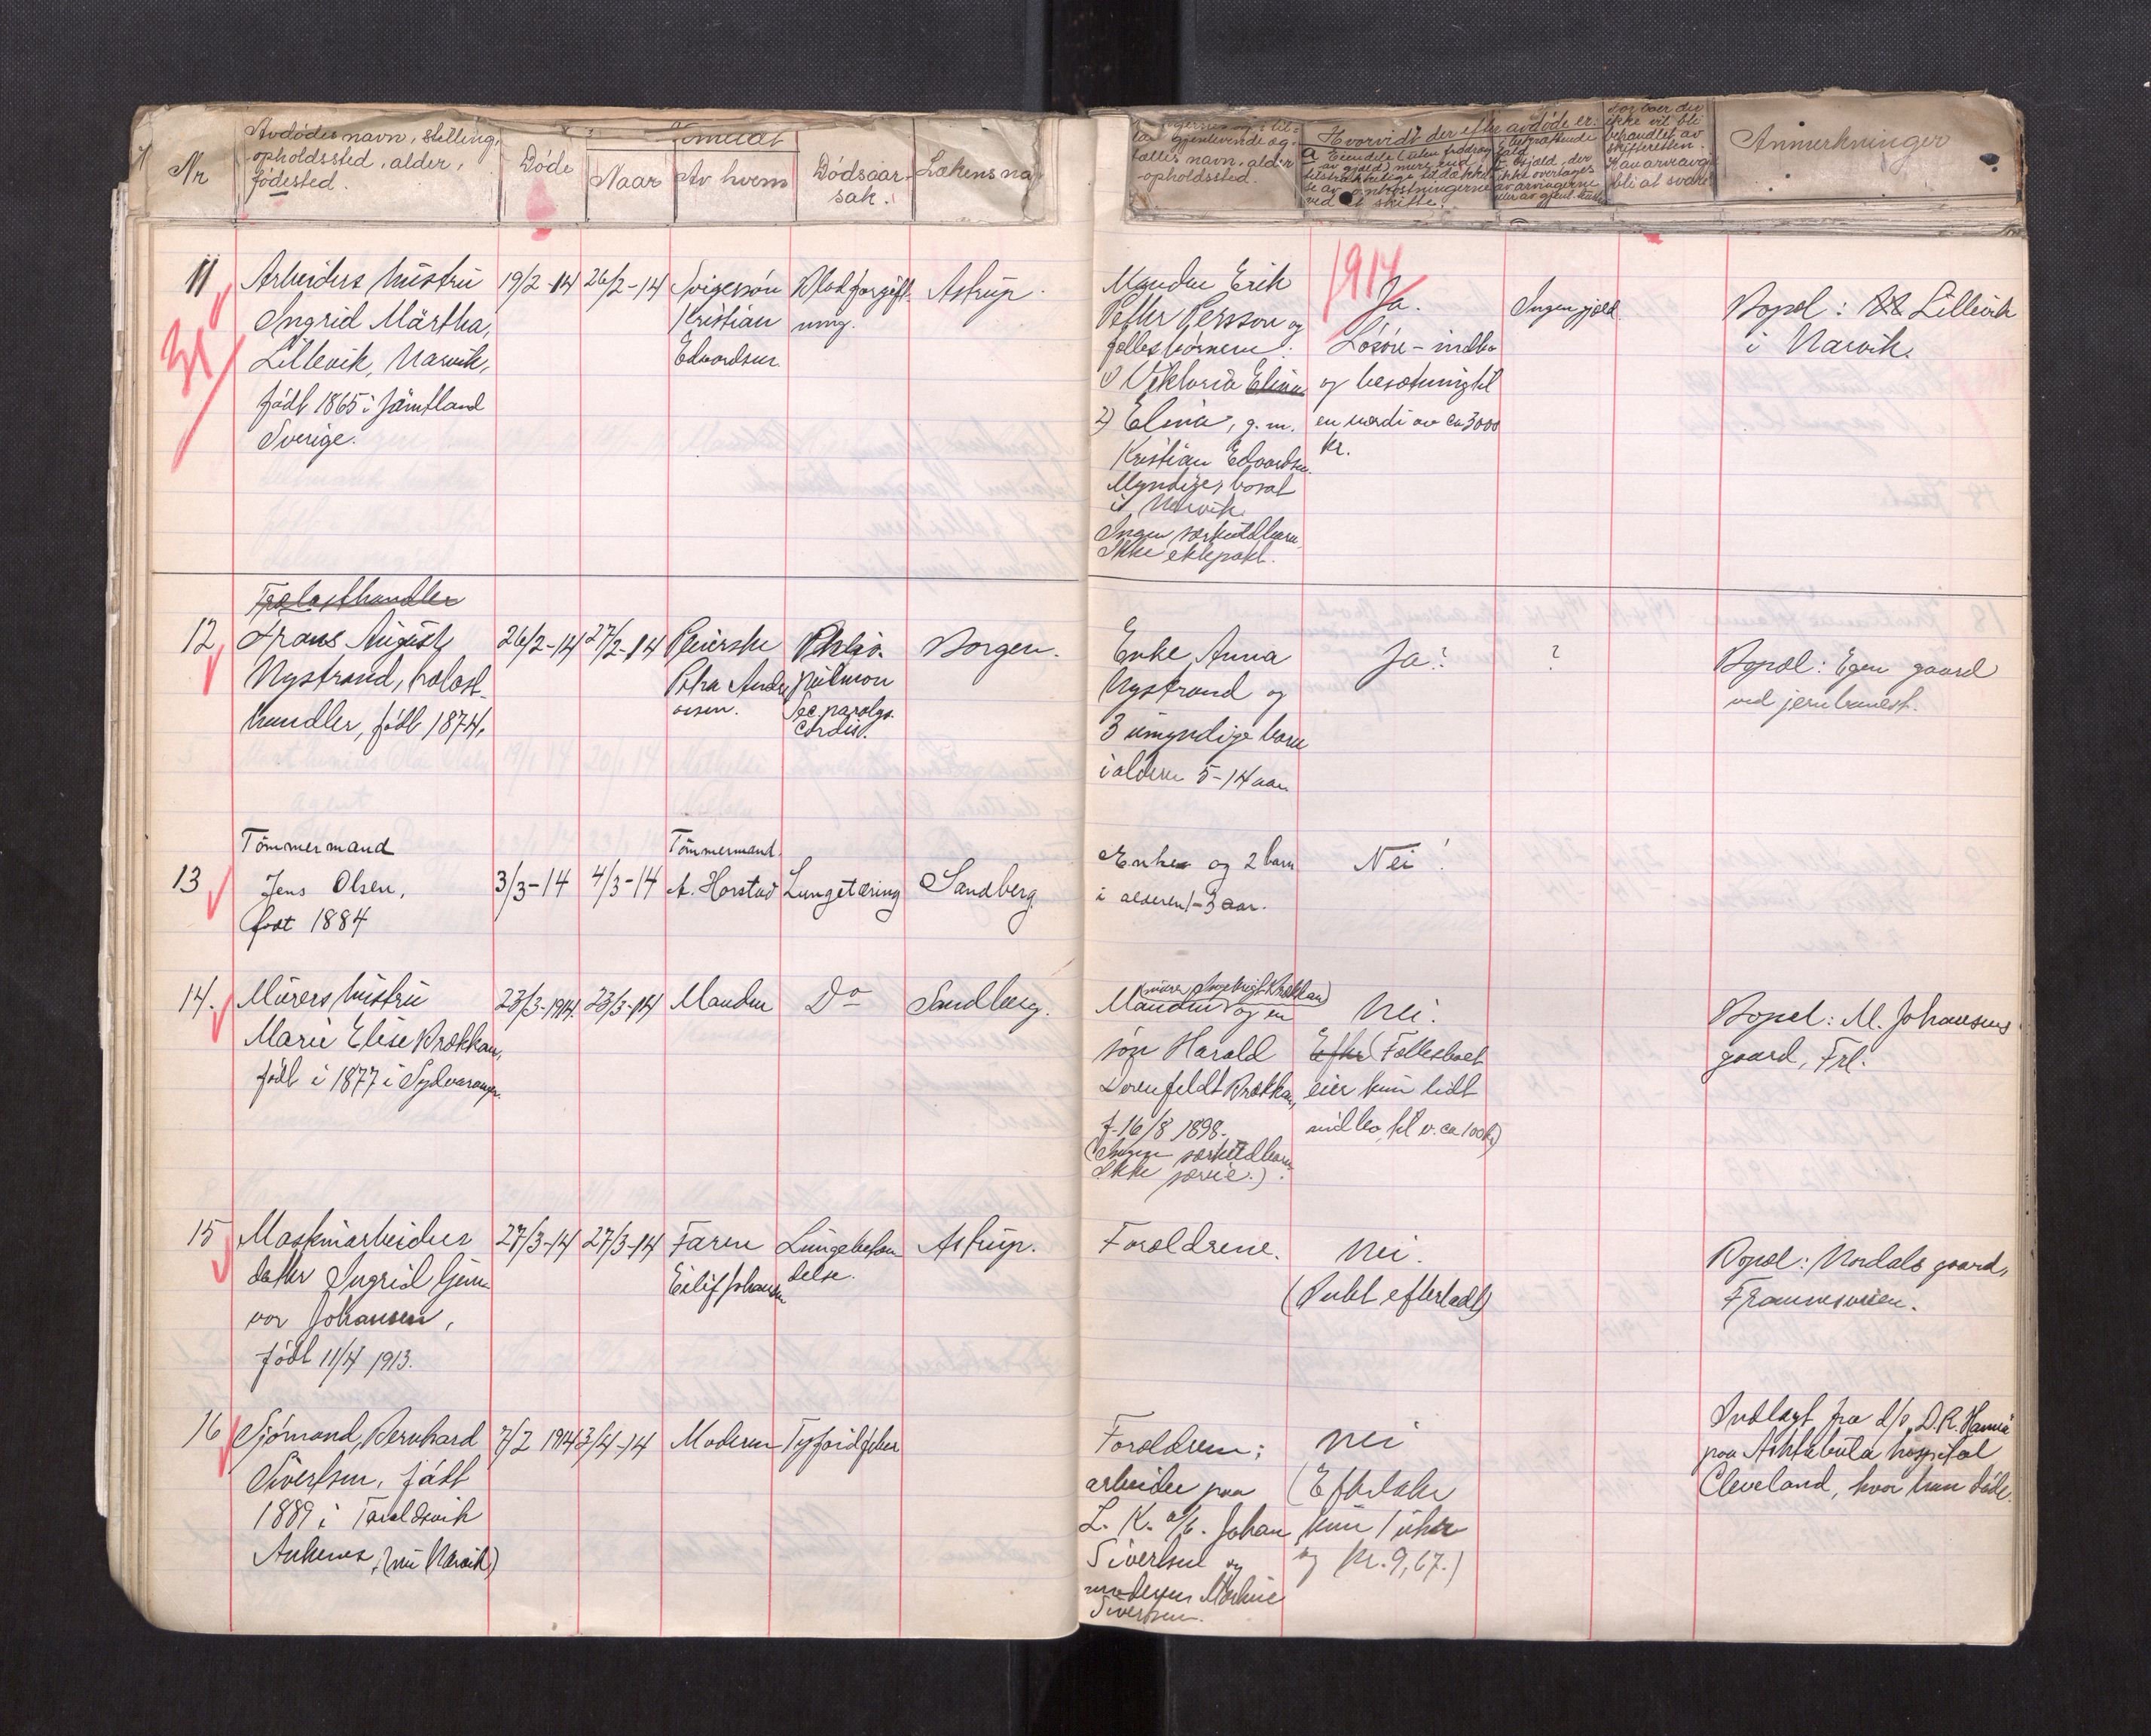 Nr
Avdødes navn, stilling,
opholdssted, alder,
fødested.
Døde
Anmeldt
Naar
Av hvem
Dødsaar-
sak.
Lækens na
gjenlevende æg-
tefælles navn, alder
-opholdssted.
Hvorvidt der efter avdøde er:
ved et skifte.
ikke vil bli
behandlet av
skifteretten.
bli at svare
Anmerkninger
11
Arbeiders hustru
Ingrid Märtha,
Lillevik, Narvik,
født 1865 i Jämtland
Sverige.
19/2-14
26/2-14
Svigersøn
Kristian
Edvardsen.
Blodforgift-
ning.
Astrup.
Manden Erik
Petter Persson og
fællesbørnene:
1) Viktoria Elina
2) Elina, g. m.
Kristian Edvardsen.
Myndige, bosat
i Narvik.
Ingen særkuldbarn.
Ikke ektepakt.
1914
Ja.
Løsøre - indbo
og besætning til
en værdi av ca 3000
kr.
Ingen gjæld.
Bopæl: Lillevik
i Narvik.
12
Trælasthandler
Frans August
Nystrand, trælast-
handler, født 1874.
26/2-14
27/2-14
Pleierske
Petra Andre
asen.
Phtisis
pulmon
Sec. paralys.
cordis.
Borgen.
Enke Anna
Nystrand og
3 umyndige barn
i alderen 5-14 aar.
Ja?
?
Bopæl: Egen gaard
ved jernbanest.
13
Tömmermand
Jens Olsen,
født 1884
3/3-14
4/3-14
Tömmermand
A. Horstad
Lungetæring
Sandberg
Enke og 2 barn
i alderen 1-3 aar.
Nei!
14.
Murers hustru
Marie Elise Brækkan,
født i 1877 i Sydvaranger.
23/3-1914.
23/3-14
Manden
Do
Sandberg.
Manden og en
søn Harald
Dorenfeldt Brækkan,
f. 16/8 1898.
(Ingen særkuldbarn
Ikke særeie.).
Nei.
Efter (Fællesboet
eier kun lidt
indbo, til v. ca 100 kr)
Bopæl: M. Johansens
gaard, Frl.
15
Maskinarbeiders
datter Ingrid Gun-
vor Johansen,
født 11/4 1913.
27/3-14
27/3-14
Faren
Eilif Johansen
Lungebetæn
delse.
Astrup.
Forældrene.
Nei.
(Intet efterladt)
Bopæl: Nordals gaard,
Framnesveien.
16
Sjømand, Bernhard
Sivertsen, født
1889 i Taraldsvik
Ankenes, (nu Narvik)
7/2 1914
3/4-14
Moderen
Tyfoidfeber
Forældren;
arbeider paa
L. K. a/b. Johan
Sivertsen og
moderen Martine
Sivertsen.
Nei
(Efterlater
kun 1 uhr
og kr. 9,67.)
Indlagt fra d/s „D. R. Hanna"
paa Ashtabula hospital
Cleveland, hvor han døde.